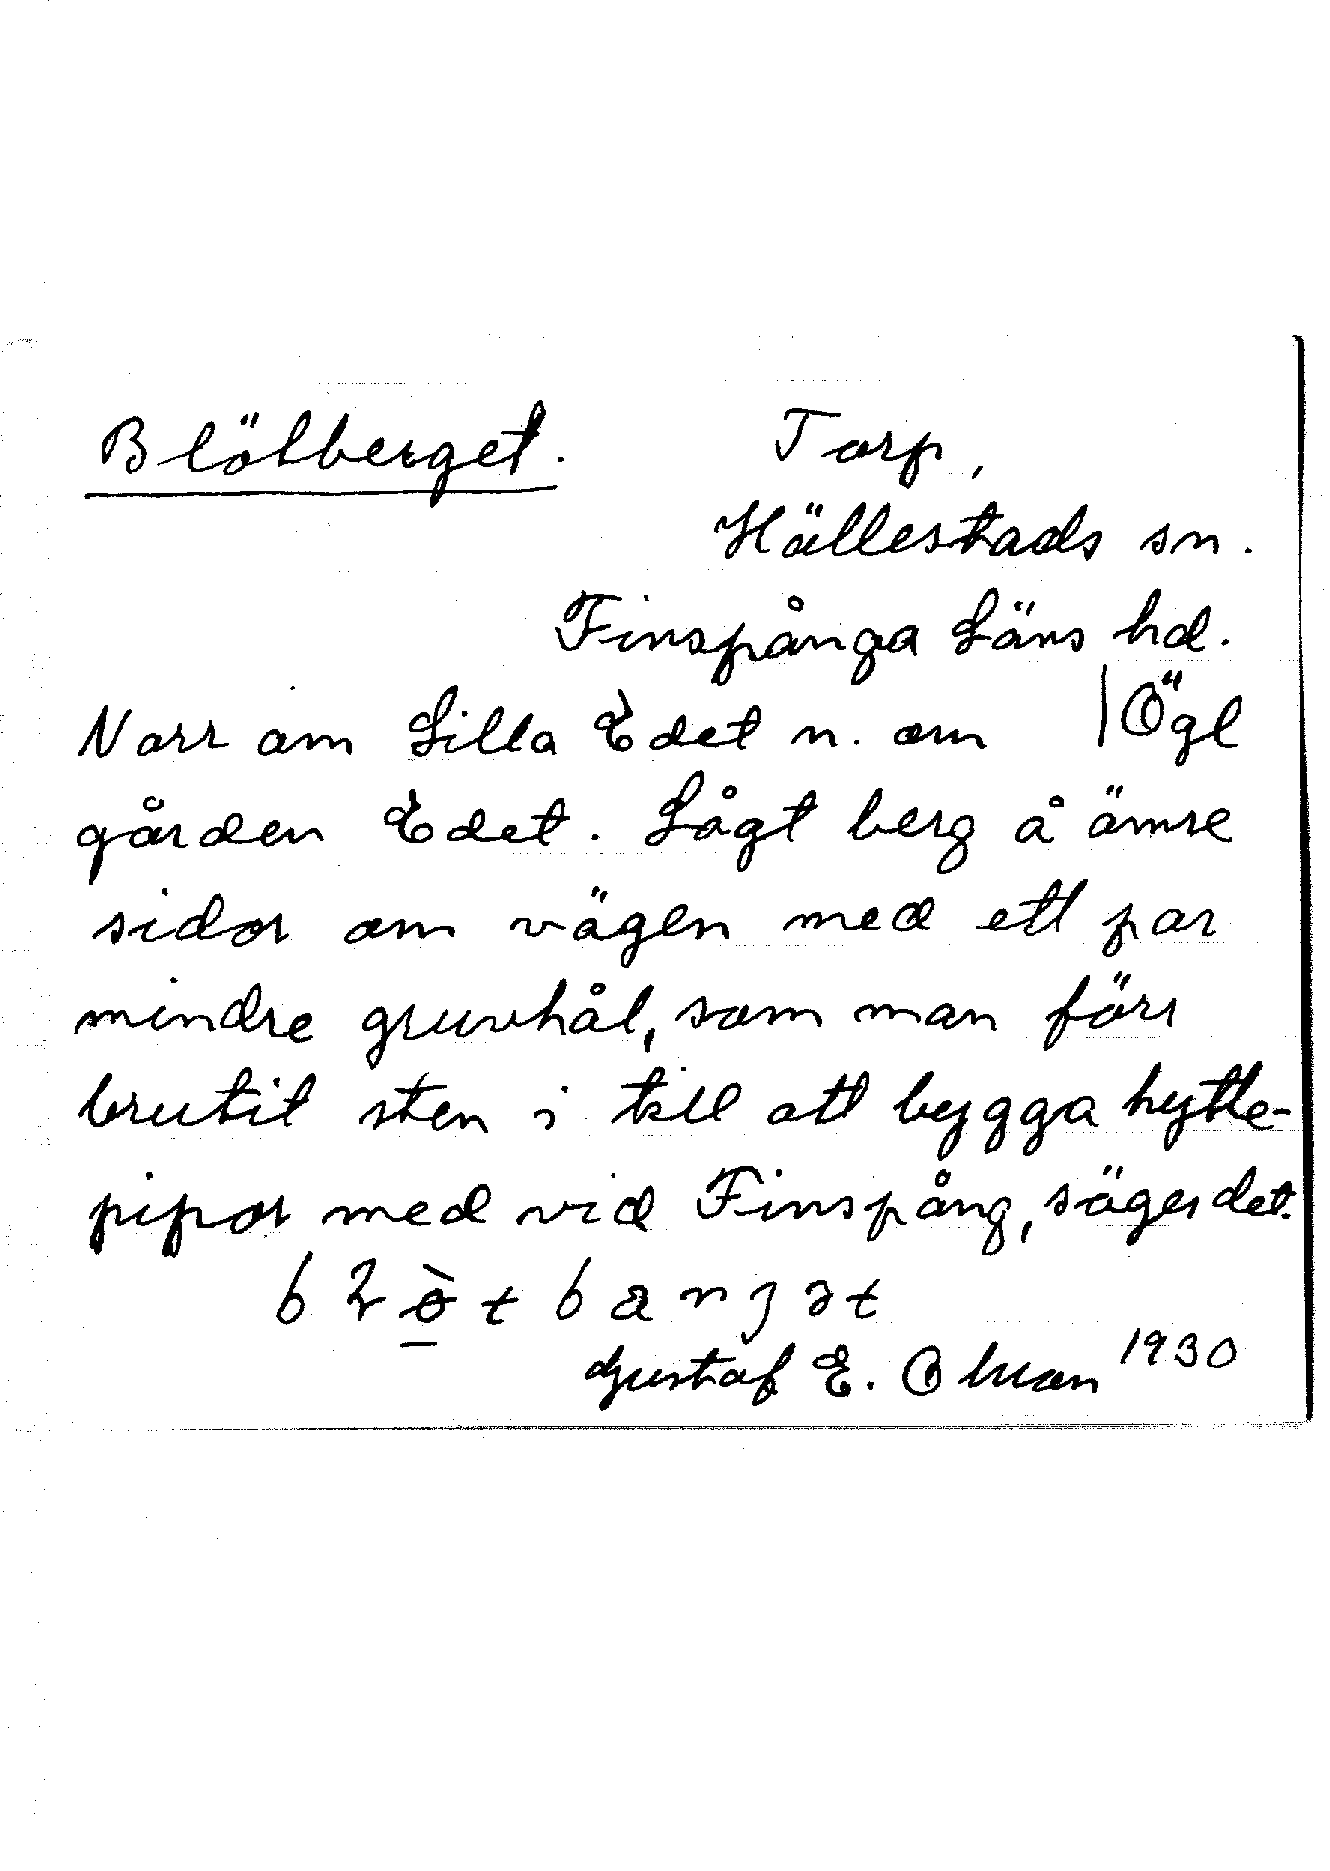 Blötberget. Torp,
Hällestads sn.
Finspånga Läns hd.
Norr om Lilla Edet n. om | Ögl
gården Edet. Lågt berg å ömse
sidor om vägen med ett par
mindre gruvhål, som man förr
brutit sten i till att bygga hytte-
pipor med vid Finspång, säges det.
Gustaf E. Ohman 1930